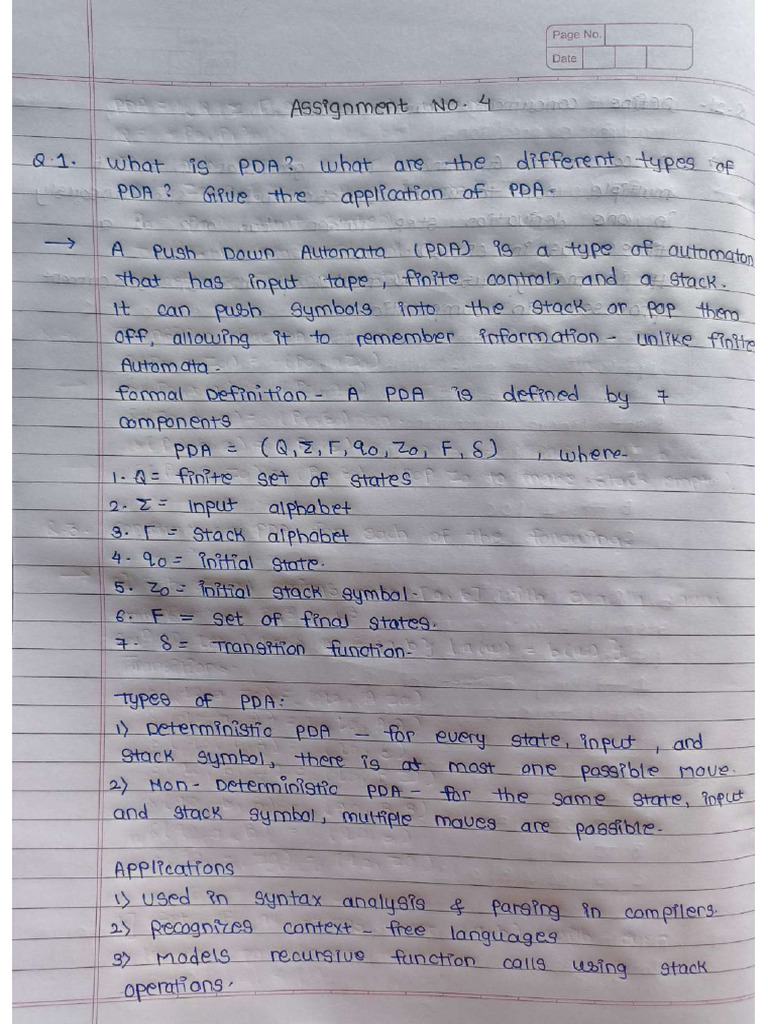 Page No.
Date
Assignment No. 4
Q.1. What is PDA? What are the different types of
PDA? Give the application of PDA.
→ A Push Down Automata (PDA) is a type of automaton
that has input tape, finite control, and a stack.
It can push symbols into the stack or pop them
off, allowing it to remember information - unlike finite
Automata.
Formal Definition - A PDA is defined by 7
components
PDA = (Q, Σ, Γ, q0, Z0, F, δ) , where-
1. Q = finite set of states
2. Σ = input alphabet
3. Γ = stack alphabet
4. q0 = initial state.
5. Z0 = initial stack symbol.
6. F = set of final states.
7. δ = Transition function.
Types of PDA:
1) Deterministic PDA - for every state, input, and
stack symbol, there is at most one possible move.
2) Non-Deterministic PDA - for the same state, input
and stack symbol, multiple moves are possible.
Applications
1) Used in syntax analysis & parsing in compilers.
2) Recognizes context-free languages
3) Models recursive function calls using stack
operations.